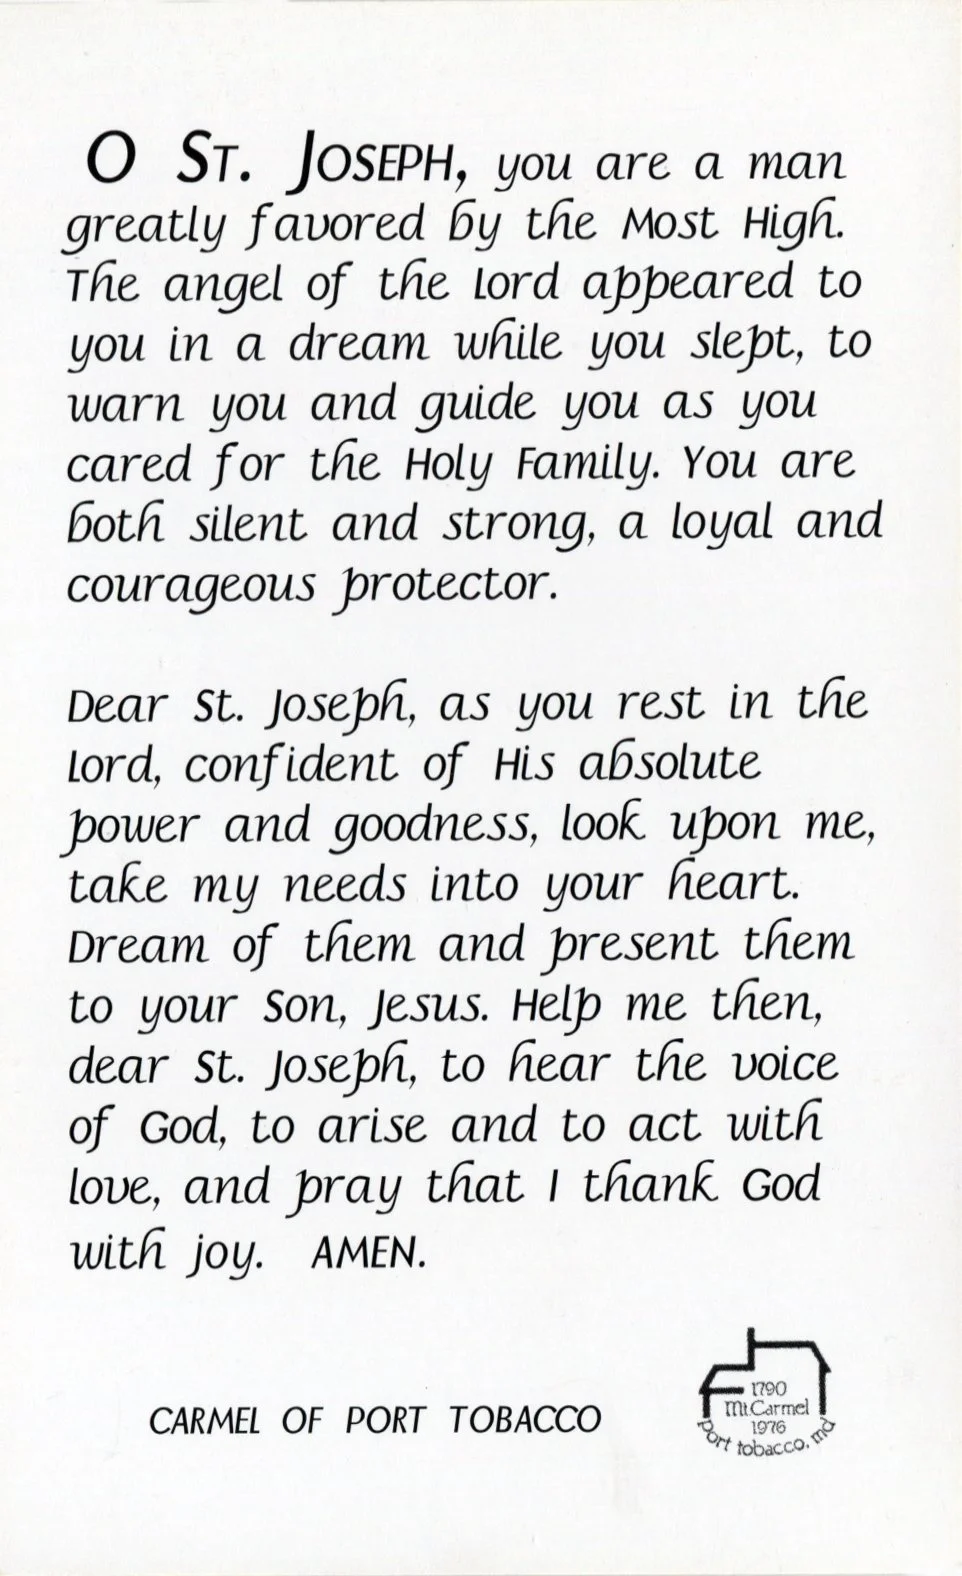 O ST. JOSEPH, you are a man
greatly favored by the Most High.
The angel of the Lord appeared to
you in a dream while you slept, to
warn you and guide you as you
cared for the Holy Family. You are
both silent and strong, a loyal and
courageous protector.
Dear St. Joseph, as you rest in the
Lord, confident of His absolute
power and goodness, look upon me,
take my needs into your heart.
Dream of them and present them
to your Son, Jesus. Help me then,
dear St. Joseph, to hear the voice
of God, to arise and to act with
love, and pray that I thank God
with joy. AMEN.
CARMEL OF PORT TOBACCO
1790
Mt.Carmel
1976
port tobacco, md